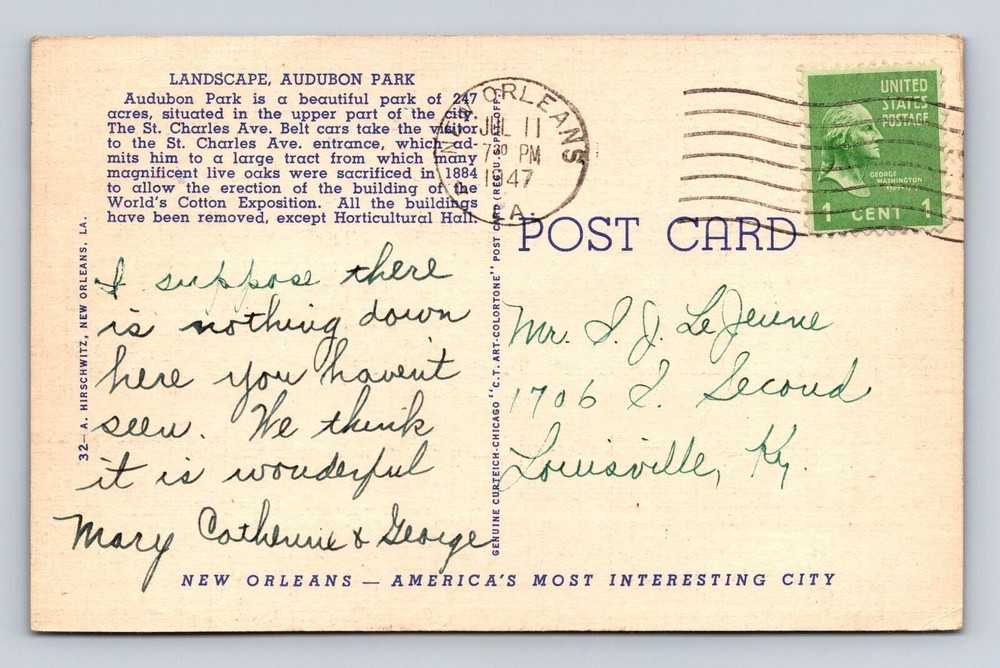 LANDSCAPE, AUDUBON PARK
Audubon Park is a beautiful park of 247
acres, situated in the upper part of the city.
The St. Charles Ave. Belt cars take the visitor
to the St. Charles Ave. entrance, which ad-
mits him to a large tract from which many
magnificent live oaks were sacrificed in 1884
to allow the erection of the building of the
World's Cotton Exposition. All the buildings
have been removed, except Horticultural Hall.
32—A. HIRSCHWITZ, NEW ORLEANS, LA.
I suppose there
is nothing down
here you haven't
seen. We think
it is wonderful
Mary Catherine & George
GENUINE CURTEICH-CHICAGO "C.T. ART-COLORTONE" POST CARD (REG. U.S. PAT. OFF.)
NEW ORLEANS
JUL 11
7 30 PM
1947
LA.
UNITED
STATES
POSTAGE
GEORGE
WASHINGTON
1 CENT 1
POST CARD
Mr. S. J. LeJeune
1706 S. Second
Louisville, Ky.
NEW ORLEANS — AMERICA'S MOST INTERESTING CITY